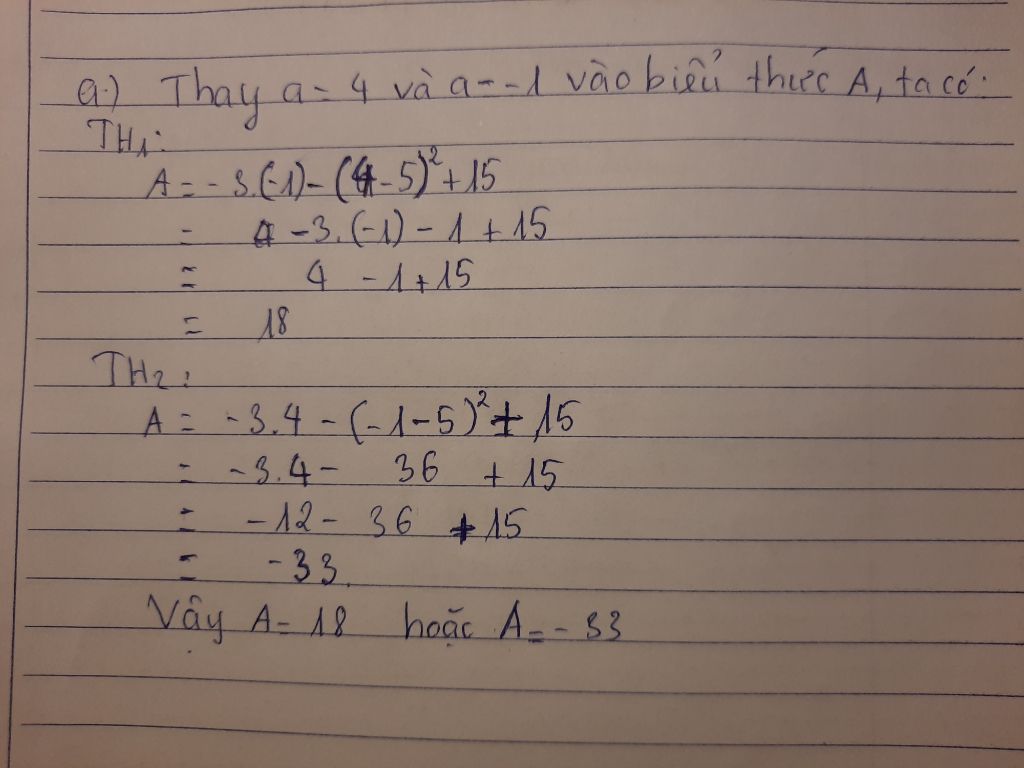 a.) Thay a = 4 và a = -1 vào biểu thức A, ta có:
TH1:
A = - 3.(-1) - (4 - 5)² + 15
= - 3.(-1) - 1 + 15
= 4 - 1 + 15
= 18
TH2:
A = -3.4 - (-1 - 5)² + 15
= -3.4 - 36 + 15
= -12 - 36 + 15
= -33.
Vậy A = 18 hoặc A = - 33